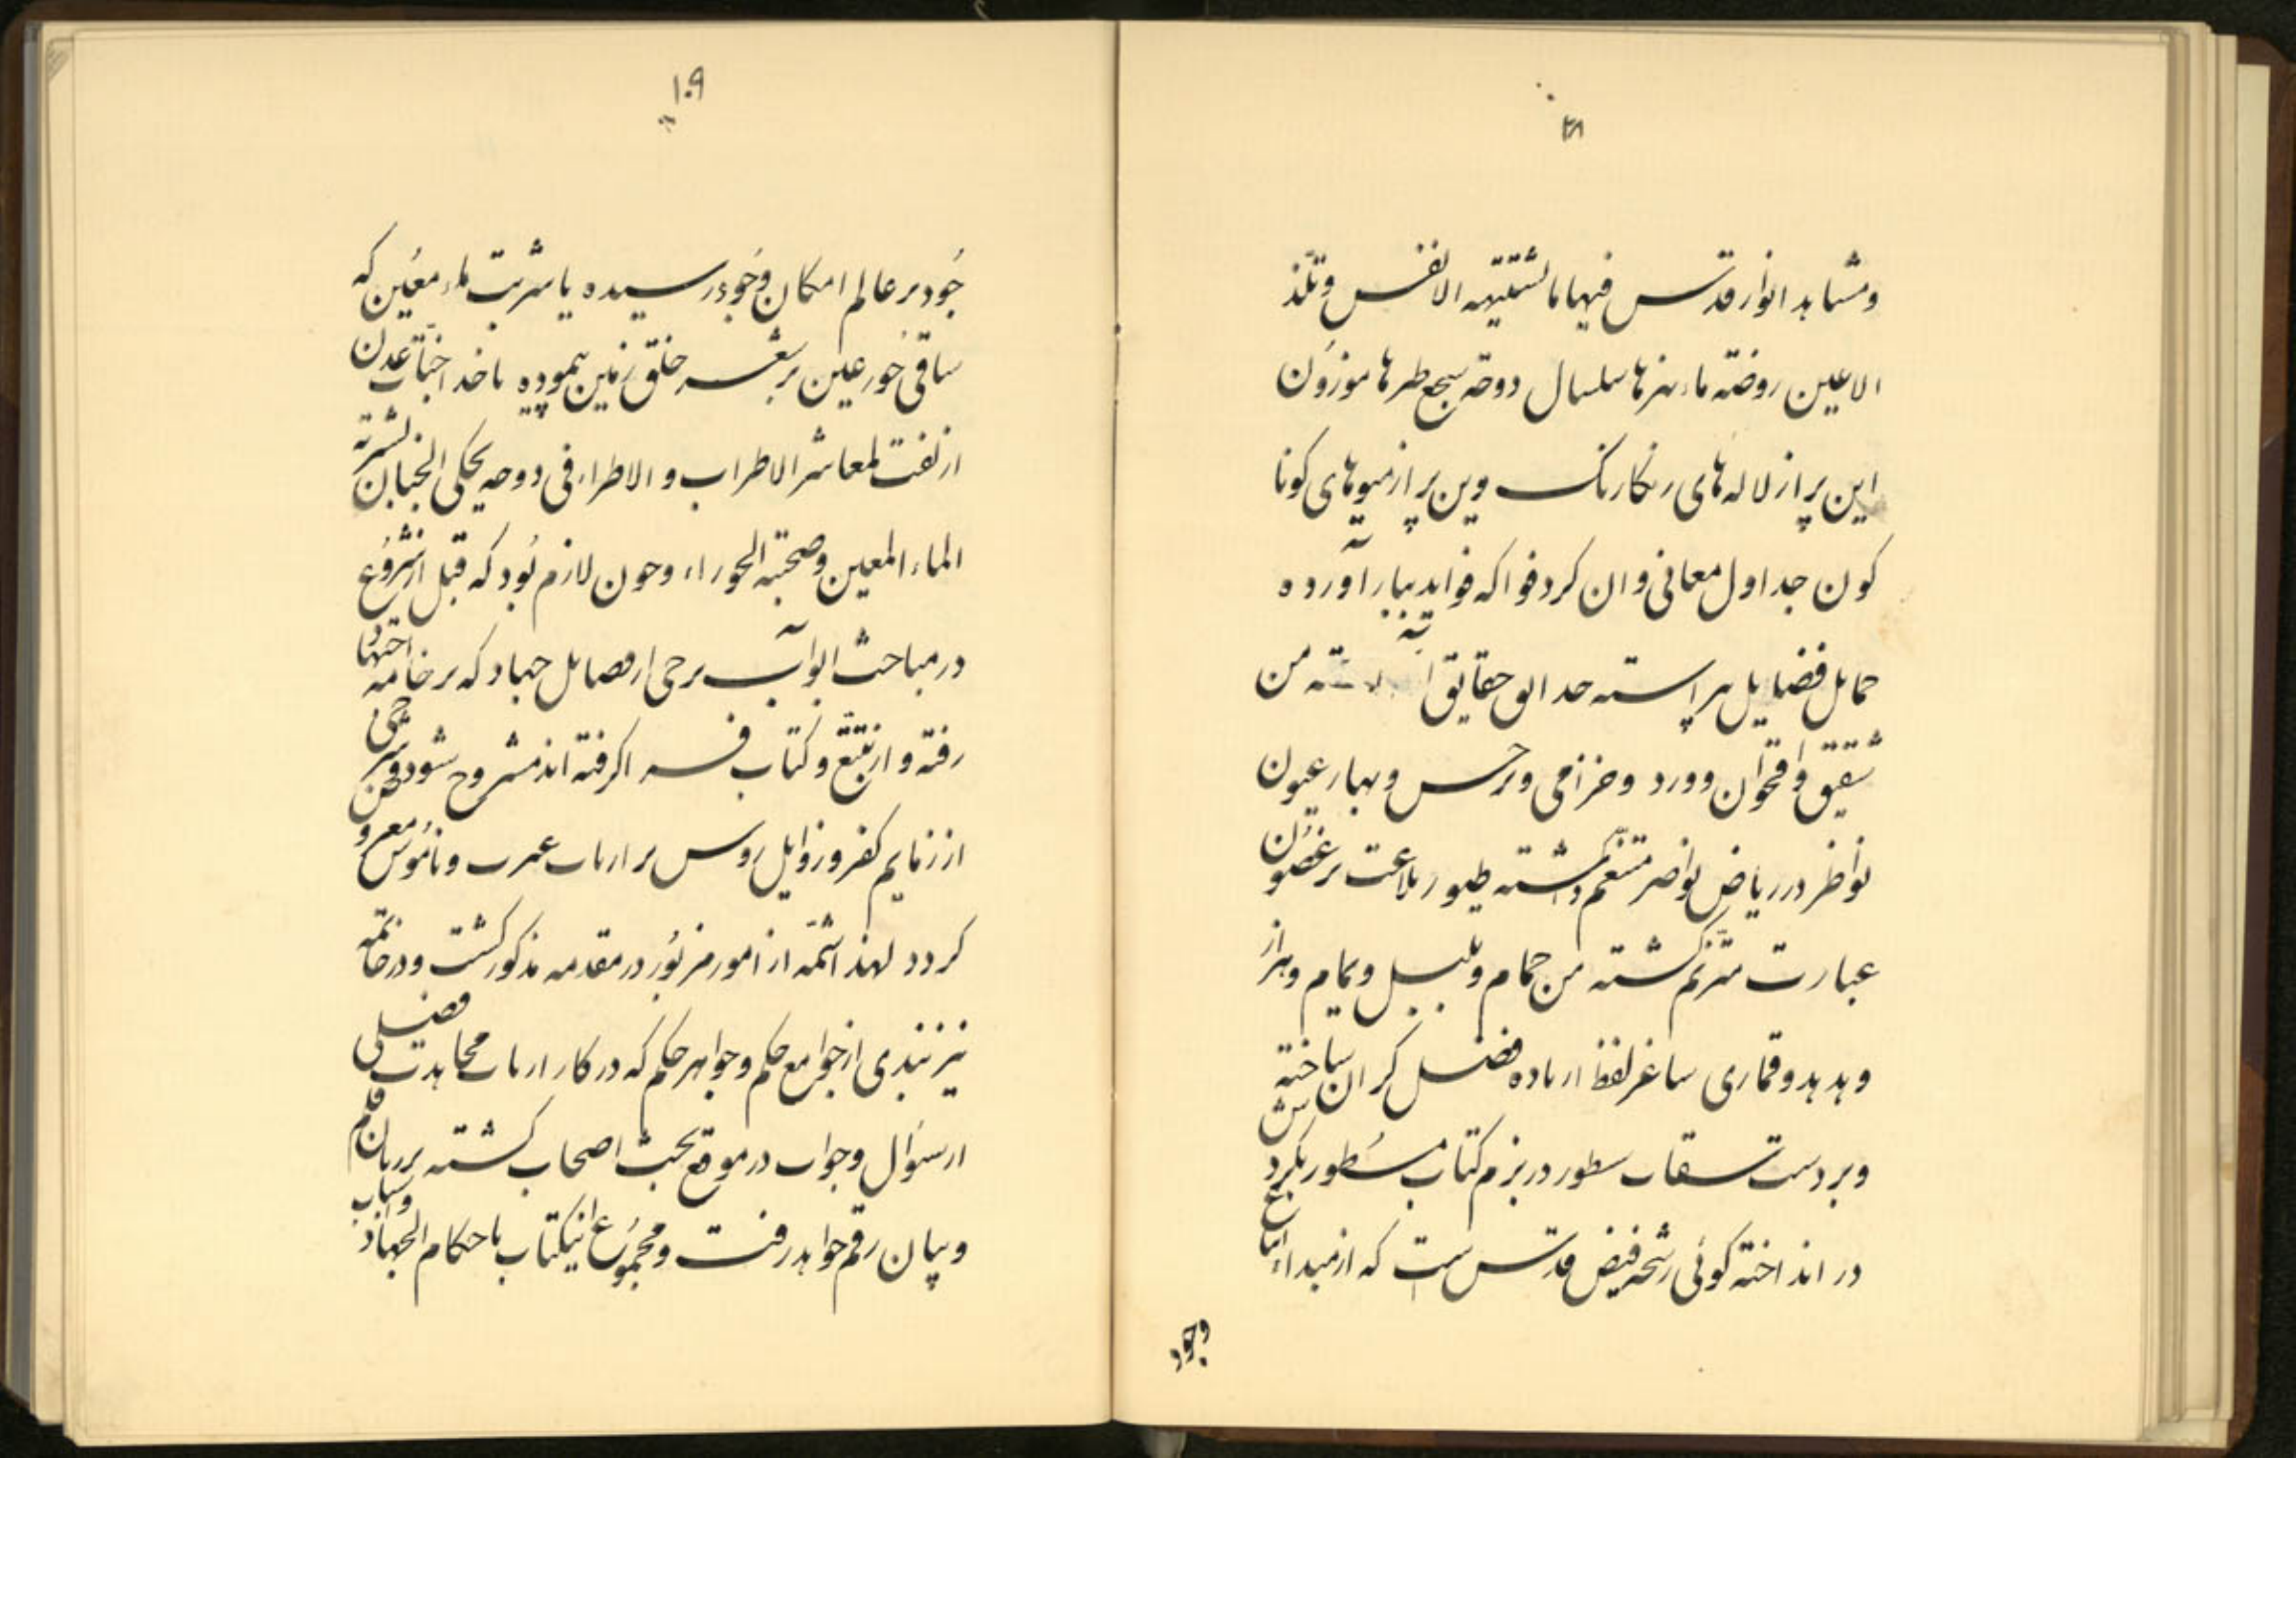 ومشاهد انوار قدس فیهاما تشتهیه الانفس وتلذ
الاعین روضة ماء نهرها سلسال دوحة سجع طیرها موزون
این پر از لاله های رنکارنک وین پر از میوهای کونا
کون جداول معانی روان کرد فواکه فواید ببار آورده
خمایل فضایل پیراسته حدایق حقایق من
شقیق واقحوان وورد وخزامی ونرجس وبهار عیون
نواظر در ریاض نواضر متنعم داشته طیور بلاغت بر غصون
عبارت مترنم کشته من حمام وبلبل ویمام وهزار
وهدهد وقماری ساغر لفظ از باده فضل کران ساخته
وبر دست سقات سطور در بزم کتاب مسطور بکردش
در انداخته کوئی رشحه فیض قدس است که از مبداء ابداع
وجود
۱۰۹
جود بر عالم امکان وجود رسیده یا شربت ماء معین که
ساقی حور عین بر شعیر خلق زمین پیموده یا خد اجنات عدن
ازلفت لمعاشر الاطراب و الاطراء فی دوحه یحکی الجنان بشربة
الماء المعین وصحبة الحوراء وچون لازم بود که قبل از شروع
در مباحث ابواب برخی از فضایل جهاد که بر خامه اجتهاد
رفته و از تتبع وکتاب فرا کرفته اند مشروح شود وشرحی
از زمایم کفر ورزایل روس بر ارباب عرب وناموس معروض
کردد لهذا شمه از امور مزبور در مقدمه مذکور کشت ودر خاتمه
نیز نبذی از جوامع حکم وجواهر حکم که در کار ارباب مجاهدت فصلی
از سؤال وجواب در موقع بحث اصحاب کشته بر زبان قلم
وبیان رقم خواهد رفت ومجموع اینکتاب باحکام الجهاد واسباب